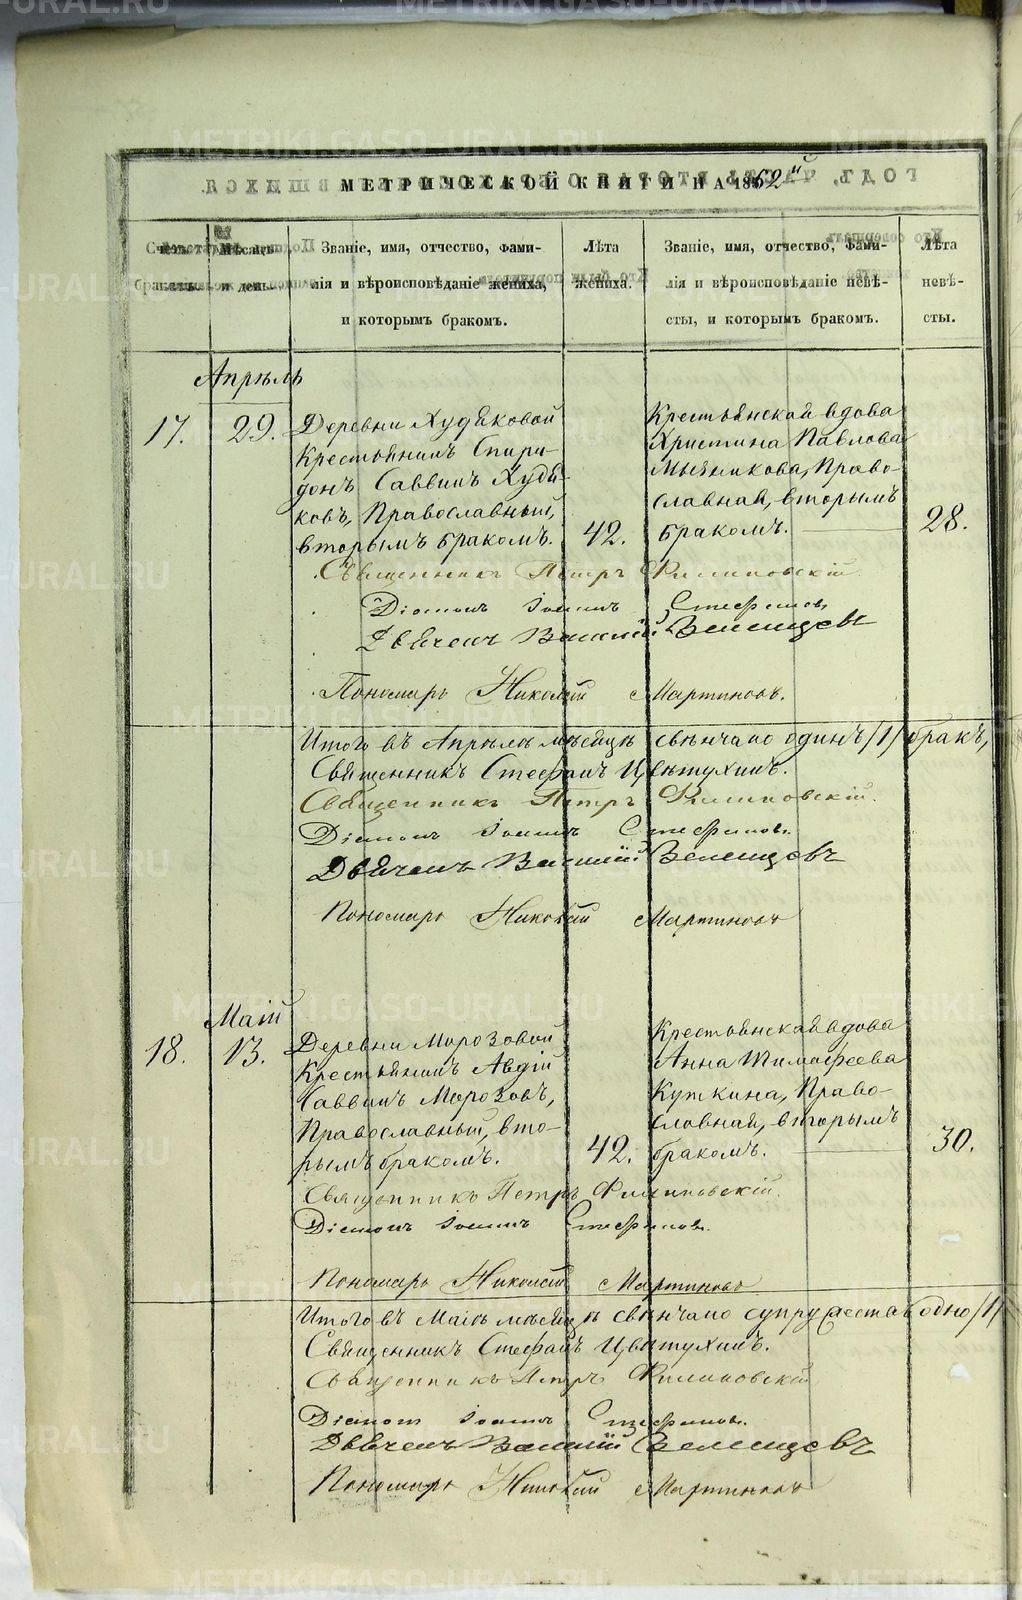 МЕТРИЧЕСКОЙ КНИГИ НА 1862й
Счетъ браковъ.
Мѣсяцъ и день.
Званіе, имя, отчество, фами-
лія и вѣроисповѣданіе жениха,
и которымъ бракомъ.
Лѣта
жениха.
Званіе, имя, отчество, фами-
лія и вѣроисповѣданіе невѣ-
сты, и которымъ бракомъ.
Лѣта
невѣ-
сты.
Апрѣль
17. 29.
Деревни Худяковой
Крестьянинъ Спири-
донъ Саввинъ Худя-
ковъ, Православный,
вторымъ бракомъ. 42.
Крестьянская вдова
Христина Павлова
Мызникова, Право-
славная, вторымъ
бракомъ. 28.
Священникъ Петръ Филиповскій.
Діаконъ Іоаннъ Стефановъ
Дьячекъ Василій Зеленцовъ
Пономарь Николай Мартиновъ.
Итого въ Апрѣлѣ мѣсяцѣ свѣнчано одинъ /1/ бракъ,
Священникъ Стефанъ Цвѣтухинъ.
Священникъ Петръ Филиповскій.
Діаконъ Іоаннъ Стефановъ.
Дьячекъ Василій Зеленцовъ
Пономарь Николай Мартиновъ
Маій
18. 13.
Деревни Морозовой
Крестьянинъ Авдій
Саввинъ Морозовъ,
Православный, вто-
рымъ бракомъ. 42.
Крестьянская вдова
Анна Тимофеева
Куткина, Право-
славная, вторымъ
бракомъ. 30.
Священникъ Петръ Филиповскій.
Діаконъ Іоаннъ Стефановъ.
Пономарь Николай Мартиновъ
Итого въ Маіѣ мѣсяцѣ свѣнчано супружество одно /1/
Священникъ Стефанъ Цвѣтухинъ.
Священникъ Петръ Филиповскій
Діаконъ Іоаннъ Стефановъ.
Дьячекъ Василій Зеленцовъ
Пономарь Николай Мартиновъ
METRIKI.GASO-URAL.RU